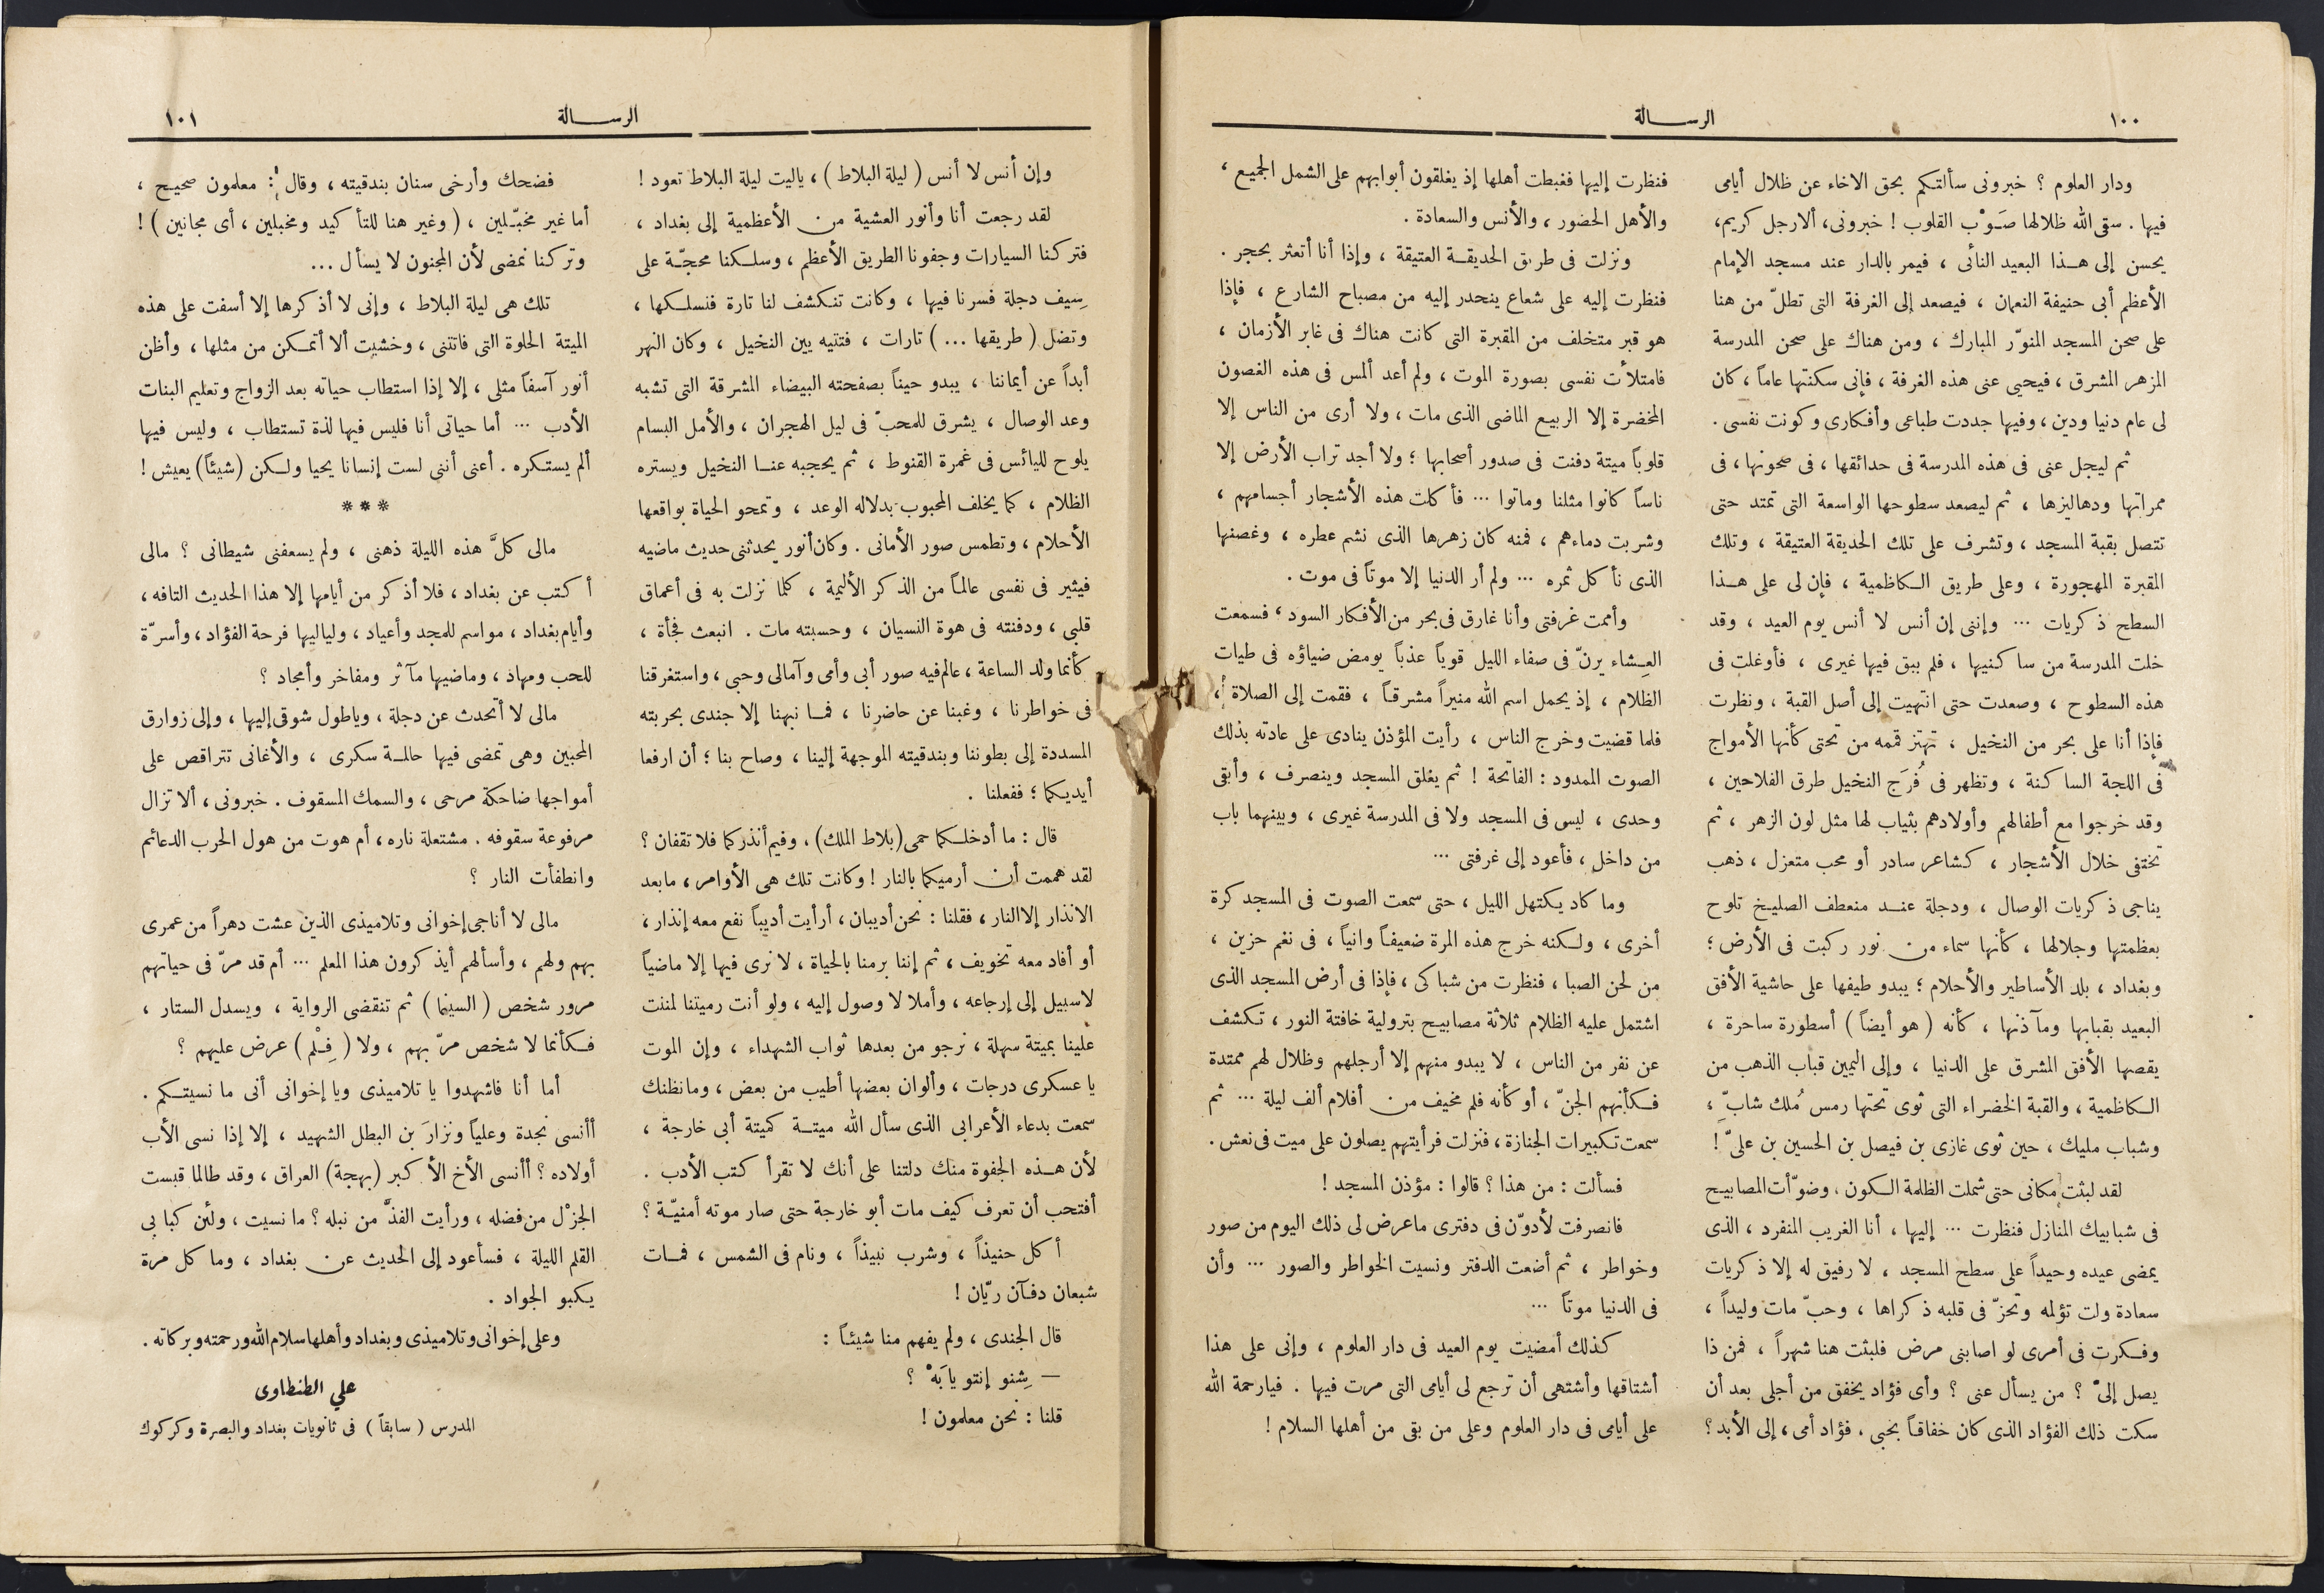 ١٠٠
الرســالة
ودار العلوم ؟ خبرونى سألتكم بحق الاخاء عن ظلال أيامى
فيها . سقى الله ظلالها صَوْب القلوب ! خبرونى، ألا رجل كريم،
يحسن إلى هذا البعيد النأى ، فيمر بالدار عند مسجد الإمام
الأعظم أبى حنيفة النعمان ، فيصعد إلى الغرفة التى تطلّ من هنا
على صحن المسجد المنوّر المبارك ، ومن هناك على صحن المدرسة
المزهر المشرق ، فيحيى عنى هذه الغرفة ، فإنى سكنتها عاماً ، كان
لى عام دنيا ودين ، وفيها جددت طباعى وأفكارى وكونت نفسى .
ثم ليجل عنى فى هذه المدرسة فى حدائقها ، فى صحونها ، فى
ممراتها ودهاليزها ، ثم ليصعد سطوحها الواسعة التى تمتد حتى
تتصل بقبة المسجد ، وتشرف على تلك الحديقة العتيقة ، وتلك
المقبرة المهجورة ، وعلى طريق الكاظمية ، فإن لى على هذا
السطح ذكريات ... وإننى إن أنس لا أنس يوم العيد ، وقد
خلت المدرسة من ساكنيها ، فلم يبق فيها غيرى ، فأوغلت فى
هذه السطوح ، وصعدت حتى انتهيت إلى أصل القبة ، ونظرت
فإذا أنا على بحر من النخيل ، تهتز قممه من تحتى كأنها الأمواج
فى اللجة الساكنة ، وتظهر فى فُرَج النخيل طرق الفلاحين ،
وقد خرجوا مع أطفالهم وأولادهم بثياب لها مثل لون الزهر ، ثم
تختفى خلال الأشجار ، كشاعر سادر أو محب متعزل ، ذهب
يناجى ذكريات الوصال ، ودجلة عند منعطف الصليخ تلوح
بعظمتها وجلالها ، كأنها سماء من نور ركبت فى الأرض ؛
وبغداد ، بلد الأساطير والأحلام ؛ يبدو طيفها على حاشية الأفق
البعيد بقبابها ومآذنها ، كأنه ( هو أيضاً ) أسطورة ساحرة ،
يقصها الأفق المشرق على الدنيا ، وإلى اليمين قباب الذهب من
الكاظمية ، والقبة الخضراء التى ثوى تحتها رمس مُلك شابّ ،
وشباب مليك ، حين ثوى غازى بن فيصل بن الحسين بن علىّ !
لقد لبثت مكانى حتى شملت الظلمة الكون ، وضوّأت المصابيح
فى شبابيك المنازل فنظرت ... إليها ، أنا الغريب المنفرد ، الذى
يمضى عيده وحيداً على سطح المسجد ، لا رفيق له إلا ذكريات
سعادة ولت تؤلمه وتحزّ فى قلبه ذكراها ، وحبّ مات وليداً ،
وفكرت فى أمرى لو اصابنى مرض فلبثت هنا شهراً ، فمن ذا
يصل إلىّ ؟ من يسأل عنى ؟ وأى فؤاد يخفق من أجلى بعد أن
سكت ذلك الفؤاد الذى كان خفاقاً بحبى ، فؤاد أمى ، إلى الأبد ؟
فنظرت إليها فغبطت أهلها إذ يغلقون أبوابهم على الشمل الجميع ،
والأهل الحضور ، والأنس والسعادة .
ونزلت فى طريق الحديقة العتيقة ، وإذا أنا أتعثر بحجر .
فنظرت إليه على شعاع ينحدر إليه من مصباح الشارع ، فإذا
هو قبر متخلف من المقبرة التى كانت هناك فى غابر الأزمان ،
فامتلأت نفسى بصورة الموت ، ولم أعد ألمس فى هذه الغصون
المخضرة إلا الربيع الماضى الذى مات ، ولا أرى من الناس إلا
قلوباً ميتة دفنت فى صدور أصحابها ؛ ولا أجد تراب الأرض إلا
ناساً كانوا مثلنا وماتوا ... فأكلت هذه الأشجار أجسامهم ،
وشربت دماءهم ، فمنه كان زهرها الذى نشم عطره ، وغصنها
الذى نأكل ثمره ... ولم أر الدنيا إلا موتاً فى موت .
وأممت غرفتى وأنا غارق فى بحر من الأفكار السود ، فسمعت
العِشاء يرنّ فى صفاء الليل قوياً عذباً يومض ضياؤه فى طيات
الظلام ، إذ يحمل اسم الله منيراً مشرقاً ، فقمت إلى الصلاة ،
فلما قضيت وخرج الناس ، رأيت المؤذن ينادى على عادته بذلك
الصوت الممدود : الفاتحة ! ثم يغلق المسجد وينصرف ، وأبقى
وحدى ، ليس فى المسجد ولا فى المدرسة غيرى ، وبينهما باب
من داخل ، فأعود إلى غرفتى ...
وما كاد يكتهل الليل ، حتى سمعت الصوت فى المسجد كرة
أخرى ، ولكنه خرج هذه المرة ضعيفاً وانياً ، فى نغم حزين ،
من لحن الصبا ، فنظرت من شباكى ، فإذا فى أرض المسجد الذى
اشتمل عليه الظلام ثلاثة مصابيح بترولية خافتة النور ، تكشف
عن نفر من الناس ، لا يبدو منهم إلا أرجلهم وظلال لهم ممتدة
فكأنهم الجنّ ، أو كأنه فلم مخيف من أفلام ألف ليلة ... ثم
سمعت تكبيرات الجنازة ، فنزلت فرأيتهم يصلون على ميت فى نعش .
فسألت : من هذا ؟ قالوا : مؤذن المسجد !
فانصرفت لأدوّن فى دفترى ما عرض لى ذلك اليوم من صور
وخواطر ، ثم أضعت الدفتر ونسيت الخواطر والصور ... وأن
فى الدنيا موتاً ...
كذلك أمضيت يوم العيد فى دار العلوم ، وإنى على هذا
أشتاقها وأشتهى أن ترجع لى أيامى التى مرت فيها . فيا رحمة الله
على أيامى فى دار العلوم وعلى من بقى من أهلها السلام !
الرســالة
١٠١
وإن أنس لا أنس ( ليلة البلاط ) ، ياليت ليلة البلاط تعود !
لقد رجعت أنا وأنور العشية من الأعظمية إلى بغداد ،
فتركنا السيارات وجفونا الطريق الأعظم ، وسلكنا محجّة على
سِيف دجلة فسرنا فيها ، وكانت تنكشف لنا تارة فنسلكها ،
وتضل ( طريقها ... ) تارات ، فتتيه بين النخيل ، وكان النهر
أبداً عن أيماننا ، يبدو حيناً بصفحته البيضاء المشرقة التى تشبه
وعد الوصال ، يشرق للمحبّ فى ليل الهجران ، والأمل البسام
يلوح لليائس فى غمرة القنوط ، ثم يحجبه عنا النخيل ويستره
الظلام ، كما يخلف المحبوب بدلاله الوعد ، وتمحو الحياة بواقعها
الأحلام ، وتطمس صور الأمانى . وكان أنور يحدثنى حديث ماضيه
فيثير فى نفسى عالماً من الذكر الأليمة ، كلما نزلت به فى أعماق
قلبى ، ودفنته فى هوة النسيان ، وحسبته مات . انبعث فجأة ،
كأنما ولد الساعة ، عالم فيه صور أبى وأمى وآمالى وحبى ، واستغرقنا
فى خواطرنا ، وغبنا عن حاضرنا ، فما نبهنا إلا جندى بحربته
المسددة إلى بطوننا وبندقيته الموجهة إلينا ، وصاح بنا ؛ أن ارفعا
أيديكما ؛ ففعلنا .
قال : ما أدخلكما حمى (بلاط الملك) ، وفيم أنذركما فلا تقفان ؟
لقد هممت أن أرميكما بالنار ! وكانت تلك هى الأوامر ، ما بعد
الانذار إلا النار ، فقلنا : نحن أديبان ، أرأيت أديباً نفع معه إنذار ،
أو أفاد معه تخويف ، ثم إننا برمنا بالحياة ، لا نرى فيها إلا ماضياً
لا سبيل إلى إرجاعه ، وأملا لا وصول إليه ، ولو أنت رميتنا لمننت
علينا بميتة سهلة ، نرجو من بعدها ثواب الشهداء ، وإن الموت
يا عسكرى درجات ، وألوان بعضها أطيب من بعض ، وما نظنك
سمعت بدعاء الأعرابى الذى سأل الله ميتة كميتة أبى خارجة ،
لأن هذه الجفوة منك دلتنا على أنك لا تقرأ كتب الأدب .
أفتحب أن تعرف كيف مات أبو خارجة حتى صار موته أمنيّة ؟
أكل حنيذاً ، وشرب نبيذاً ، ونام فى الشمس ، فمات
شبعان دفآن ريّان !
قال الجندى ، ولم يفهم منا شيئاً :
— شِنو إنتو يا بَهْ ؟
قلنا : نحن معلمون !
فضحك وأرخى سنان بندقيته ، وقال : معلمون صحيح ،
أما غير مخبّلين ، ( وغير هنا للتأكيد ومخبلين ، أى مجانين ) !
وتركنا نمضى لأن المجنون لا يسأل ...
تلك هى ليلة البلاط ، وإنى لا أذكرها إلا أسفت على هذه
الميتة الحلوة التى فاتتنى ، وخشيت ألا أتمكن من مثلها ، وأظن
أنور آسفاً مثلى ، إلا إذا استطاب حياته بعد الزواج وتعليم البنات
الأدب ... أما حياتى أنا فليس فيها لذة تستطاب ، وليس فيها
ألم يستكره . أعنى أننى لست إنسانا يحيا ولكن (شيئاً) يعيش !
***
مالى كلَّ هذه الليلة ذهنى ، ولم يسعفنى شيطانى ؟ مالى
أكتب عن بغداد ، فلا أذكر من أيامها إلا هذا الحديث التافه ،
وأيام بغداد ، مواسم للمجد وأعياد ، ولياليها فرحة الفؤاد ، وأسرّة
للحب ومهاد ، وماضيها مآثر ومفاخر وأمجاد ؟
مالى لا أتحدث عن دجلة ، وياطول شوقى إليها ، وإلى زوارق
المحبين وهى تمضى فيها حالمة سكرى ، والأغانى تتراقص على
أمواجها ضاحكة مرحى ، والسمك المسقوف . خبرونى ، ألا تزال
مرفوعة سقوفه . مشتعلة ناره ، أم هوت من هول الحرب الدعائم
وانطفأت النار ؟
مالى لا أناجى إخوانى وتلاميذى الذين عشت دهراً من عمرى
بهم ولهم ، وأسألهم أيذكرون هذا المعلم ... أم قد مرّ فى حياتهم
مرور شخص ( السينما ) ثم تنقضى الرواية ، ويسدل الستار ،
فكأنما لا شخص مرّ بهم ، ولا ( فِلْم ) عرض عليهم ؟
أما أنا فاشهدوا يا تلاميذى ويا إخوانى أنى ما نسيتكم .
أأنسى نجدة وعلياً ونزارَ بن البطل الشهيد ، إلا إذا نسى الأب
أولاده ؟ أأنسى الأخ الأكبر (بهجة) العراق ، وقد طالما قبست
الجزْل من فضله ، ورأيت الفذَّ من نبله ؟ ما نسيت ، ولئن كبا بى
القلم الليلة ، فسأعود إلى الحديث عن بغداد ، وما كل مرة
يكبو الجواد .
وعلى إخوانى وتلاميذى وبغداد وأهلها سلام الله ورحمته وبركاته .
علي الطنطاوى
المدرس ( سابقاً ) فى ثانويات بغداد والبصرة وكركوك